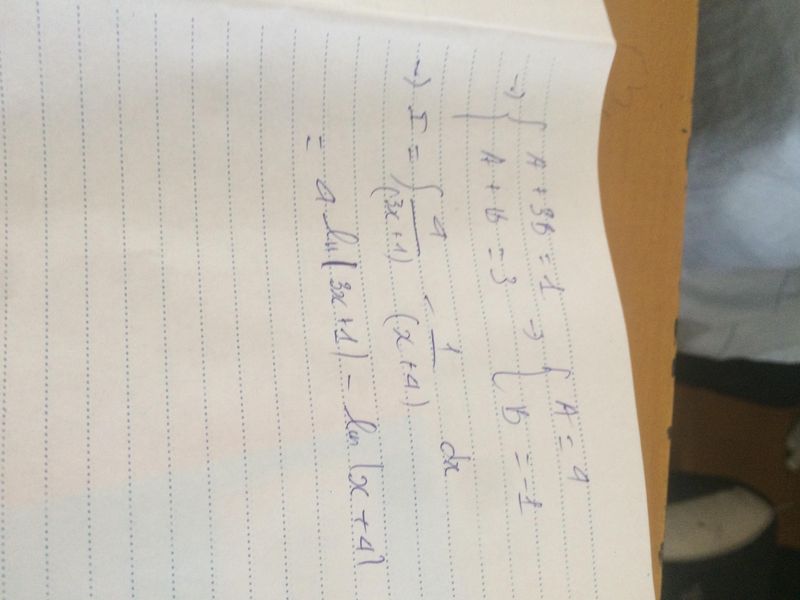 → { A + 3B = 1 → { A = 4
{ A + B = 3 { B = -1
→ I = ∫ 4/(3x+1) - 1/(x+4) dx
= 4 ln(3x+1) - ln(x+4)